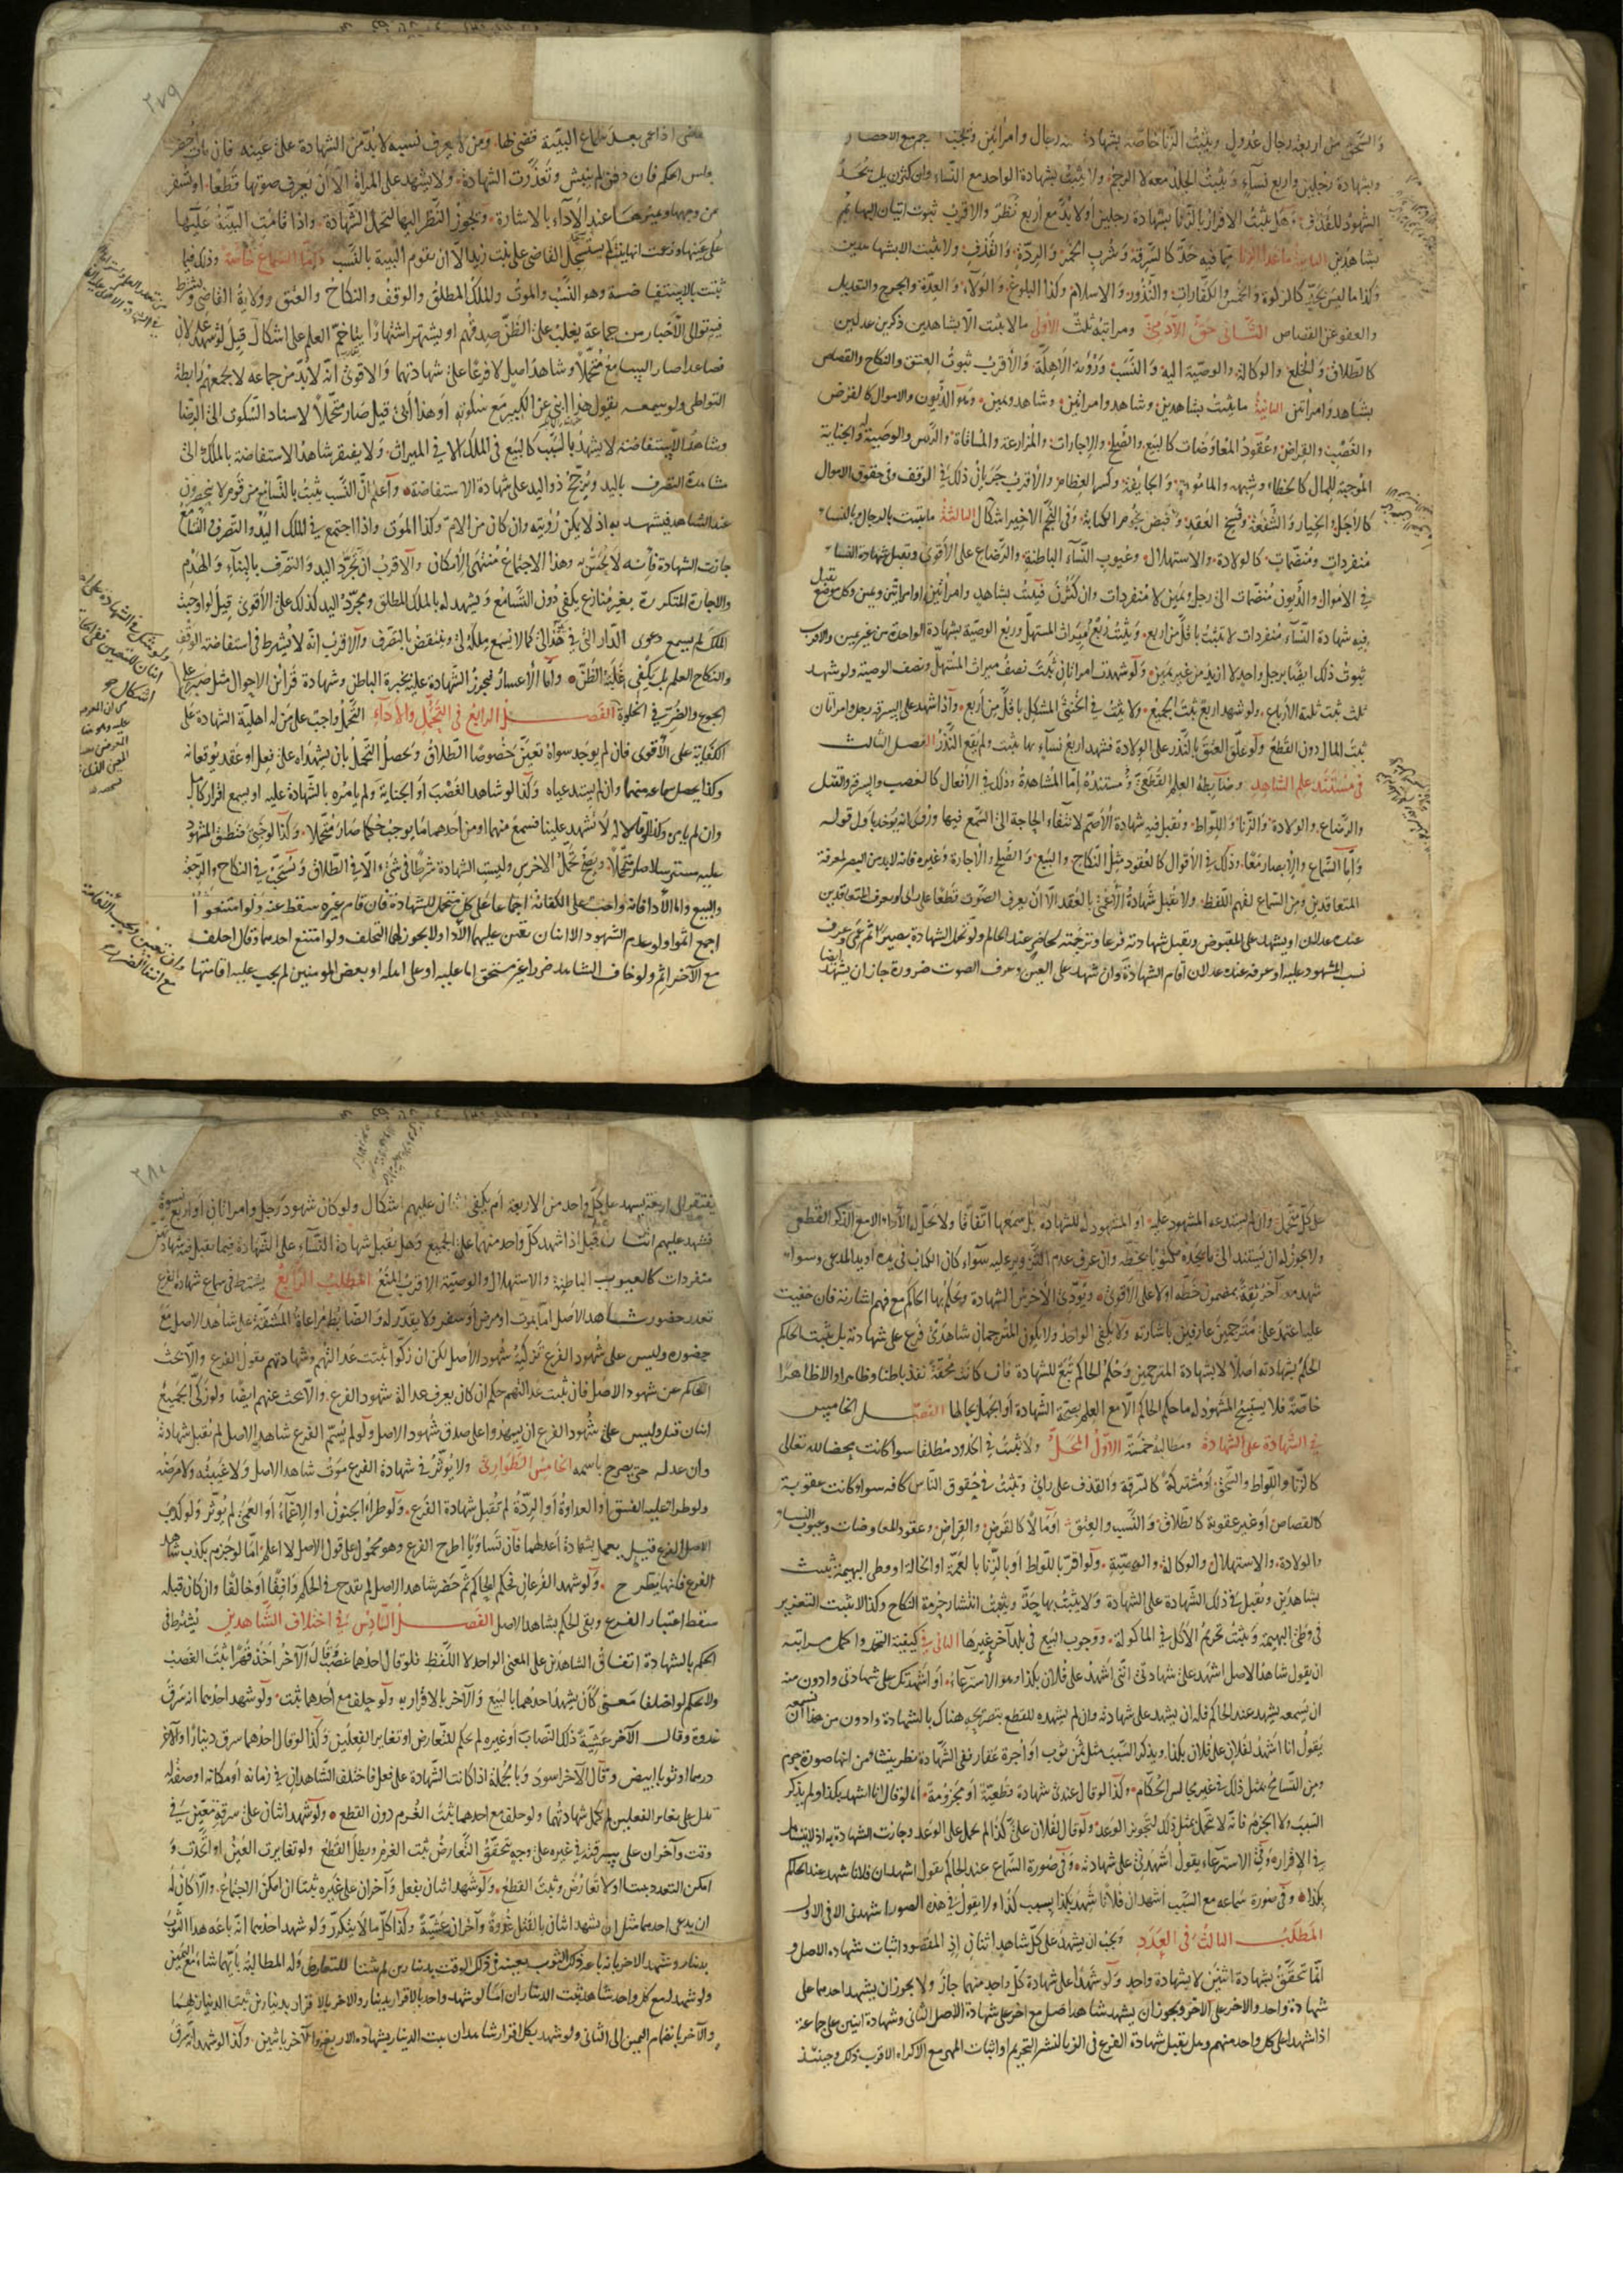 والسحق من اربعة رجال عدول ويثبت الزنا خاصة بشهادة رجال وامراتين ويجب
وبشهادة رجلين واربع نسآء ويثبت الجلد معه لا الرجم ولا يثبت بشهادة الواحد مع النساء وان كثرن بل يحد
الشهود للقذف وهل يثبت الاقرار بالزنا بشهادة رجلين او لا بد من اربع نظر والاقرب ثبوت اتيان البهايم
بشاهدين ماعدا الزنا مما فيه حد كالسرقة وشرب الخمر والردة والقذف ولا يثبت الا بشاهدين
وكذا ما ليس بحد كالزكوة والخمس والكفارات والنذور والاسلام وكذا البلوغ والولآء والعدة والجرح والتعديل
والعفو عن القصاص الثانى حق الآدمى ومراتبه ثلث الاول ما لا يثبت الا بشاهدين ذكرين عدلين
كالطلاق والخلع والوكالة والوصية اليه والنسب ورؤية الاهلة والاقرب ثبوت العتق والنكاح والقصاص
بشاهد وامراتين الثانية ما يثبت بشاهدين وشاهد وامراتين وشاهد ويمين وهو الديون والاموال كالقرض
والغصب والقراض وعقود المعاوضات كالبيع والصلح والاجارات والمزارعة والمساقاة والرهن والوصية له والجناية
الموجبة للمال كالخطاء وشبهه والمامومة والجايفة وكسر العظام والاقرب جريان ذلك فى الوقف وفى حقوق الاموال
كالاجل والخيار والشفعة وفسخ العقد وقبض نجوم الكتابة وفى النجم الاخير اشكال الثالثة ما يثبت بالرجال وبالنساء
منفردات ومنضمات كالولادة والاستهلال وعيوب النسآء الباطنة والرضاع على الاقوى وتقبل شهادة النساء
فى الاموال والديون منضمات الى رجل ويمين لا منفردات وان كثرن فيثبت بشاهد وامراتين او امراتين ويمين وكل موضع تقبل
فيه شهادة النسآء منفردات لا يثبت باقل من اربع ويثبت ربع ميراث المستهل وربع الوصية بشهادة الواحدة من غير يمين والاقرب
ثبوت ذلك ايضا برجل واحد لا ازيد من غير يمين ولو شهدت امراتان ثبت نصف ميراث المستهل ونصف الوصية ولو شهد
ثلث ثبت ثلثة الارباع ولو شهد اربع ثبت الجميع ولا يثبت فى الخنثى المشكل باقل من اربع واذا شهد على السرقة رجل وامراتان
ثبت المال دون القطع ولو علق العتق بالنذر على الولادة فشهد اربع نسآء بها ثبتت ولم يقع النذر الفصل الثالث
فى مستند علم الشاهد وضابطه العلم القطعى ومستنده اما المشاهدة وذلك فى الافعال كالغصب والسرقة والقتل
والرضاع والولادة والزنا واللواط وتقبل فيه شهادة الاصم لانتفاء الحاجة الى السمع فيها وروى انه يؤخذ باول قوله
واما السماع والابصار معا وذلك فى الاقوال كالعقود مثل النكاح والبيع والصلح والاجارة وغيره فانه لابد من البصر لمعرفة
المتعاقدين ومن السماع لفهم اللفظ ولا تقبل شهادة الاعمى بالعقد الا ان يعرف الصوت قطعا على راى او يعرف المتعاقدين
عنده عدلان او يشهد على المقبوض وتقبل شهادته فرعا وترجمته لحاضر عند الحاكم ولو تحمل الشهادة بصيرا ثم عمى وعرف
نسب المشهود عليه او عرفه عنده عدلان اقام الشهادة وان شهد على العين وعرف الصوت ضرورة جاز ان يشهد ايضا
٢٧٩
بعد سماع البينة قضى لها ومن لا يعرف نسبه لا بد من الشهادة على عينه فان مات احضر
مجلس الحكم فان دفن لم ينبش وتعذرت الشهادة ولا يشهد على المراة الا ان يعرف صوتها قطعا او تسفر
عن وجهها ويميزها عند الاداء بالاشارة ويجوز النظر اليها لتحمل الشهادة واذا قامت البينة عليها
على عينها وزعمت انها بنت زيد لم يسجل القاضى على بنت زيد الا ان تقوم البينة بالنسب واما السماع خاصة وذلك فيما
يثبت بالاستفاضة وهو النسب والموت والملك المطلق والوقف والنكاح والعتق وولاية القاضى ويشترط
فيه توالى الاخبار من جماعة يغلب على الظن صدقهم او يشتهر اشتهارا يتاخم العلم على اشكال قيل لو شهد عدلان
فصاعدا صار السامع متحملا وشاهد اصل لا فرعا على شهادتهما والاقوى انه لا بد من جماعة لا يجمعهم رابطة
التواطى ولو سمعه يقول هذا ابنى عن الكبير مع سكوته او هذا ابى قيل صار متحملا لاستناد السكوى الى الرضا
وشاهد الاستفاضة لا يشهد بالسبب كالبيع فى الملك الا فى الميراث ولا يفتقر شاهد الاستفاضة بالملك الى
مشاهدة التصرف باليد ويرجح ذو اليد على شهادة الاستفاضة واعلم ان النسب يثبت بالتسامع من قوم لا ينحصرون
عند الشاهد فيشهد به اذ لا يمكن رؤيته وان كان من الام وكذا الموت واذا اجتمع فى الملك اليد والتصرف والتسامع
جازت الشهادة فانه لا يحس به وهذا الاجتماع منتهى الامكان والاقرب ان مجرد اليد والتصرف بالبناء والهدم
والاجارة المتكررة بغير منازع يكفى دون التسامع ويشهد له بالملك المطلق ومجرد اليد كذلك على الاقوى قيل لو اوجبت
الملك لم يسمع دعوى الدار التى فى يد هذا لى كما لا يسمع ملكه لى وينتقض بالتصرف والاقرب انه لا يشترط فى استفاضة الوقف
والنكاح العلم بل يكفى غلبة الظن واما الاعسار فيجوز الشهادة عليه بخبرة الباطن وشهادة قرائن الاحوال مثل صبره على
الجوع والضر فى الخلوة الفصل الرابع فى التحمل والاداء التحمل واجب على من له اهلية الشهادة على
الكفاية على الاقوى فان لم يوجد سواه تعين خصوصا الطلاق ويحصل التحمل بان يشهداه على فعل او عقد يوقعانه
وكذا يحصل سماعه منهما وان لم يستدعياه وكذا لو شاهد الغصب او الجناية ولم يامره بالشهادة عليه او سمع اقرار كامل
وان لم يامره وكذا لو قالا له لا تشهد علينا فسمع منهما او من احدهما ما يوجب حكما صار متحملا وكذا لو خبئ فنطق المشهود
عليه مسترسلا صار متحملا ويصح تحمل الاخرس وليست الشهادة شرطا فى شئ الا فى الطلاق وتستحب فى النكاح والرجعة
والبيع واما الادا فانه واجب على الكفاية اجماعا على كل متحمل للشهادة فان قام غيره سقط عنه ولو امتنعوا
اجمع اثموا ولو عدم الشهود الا اثنان تعين عليهما الادا ولا يجوز لهما التخلف ولو امتنع احدهما وقال احلف
مع الآخر اثم ولو خاف الشاهد ضررا غير مستحق اما عليه او على اهله او بعض المومنين لم يجب عليه اقامتها
على كل متحمل وان لم يستدعه المشهود عليه او المشهود له للشهادة بل سمعها اتفاقا ولا يحل له الاداء الا مع الذكر القطعى
ولا يجوز له ان يستند الى ما يجده مكتوبا بخطه وان عرف عدم التزوير عليه سواء كان الكتاب فى يده او يد المدعى وسواء
شهد معه آخر ثقة بمضمون خطه او لا على الاقوى ويؤدى الاخرس الشهادة ويحكم بها الحاكم مع فهم اشارته فان خفيت
عليه اعتمد على مترجمين عارفين باشارته ولا يكفى الواحد ولا يكون المترجمان شاهدى فرع على شهادته بل يثبت الحاكم
الحكم بشهادته اصلا لا بشهادة المترجمين وحكم الحاكم تبع للشهادة فان كانت محقة نفذ باطنا وظاهرا والا ظاهرا
خاصة فلا يستبيح المشهود له ما حكم الحاكم الا مع العلم بصحة الشهادة او الجهل بحالها الفصل الخامس
فى الشهادة على الشهادة ومطالبه خمسة الاول المحل ولا يثبت فى الحدود مطلقا سوا كانت محضا لله تعالى
كالزنا واللواط والسحق او مشتركة كالسرقة والقذف على راى وتثبت فى حقوق الناس كافة سوا كانت عقوبة
كالقصاص او غير عقوبة كالطلاق والنسب والعتق او مالا كالقرض والقراض وعقود المعاوضات وعيوب النساء
والولادة والاستهلال والوكالة والوصية ولو اقر باللواط او بالزنا بالعمة او الخالة او وطى البهيمة ثبت
بشاهدين وتقبل فى ذلك الشهادة على الشهادة ولا يثبت بها حد ويثبت انتشار حرمة النكاح وكذا لا يثبت التعزير
فى وطى البهيمة ويثبت تحريم الاكل فى الماكولة ووجوب البيع فى بلد آخر غيرها الثانى فى كيفية التحمل واكمل مراتبه
ان يقول شاهد الاصل اشهد على شهادتى اننى اشهد على فلان بكذا وهو الاسترعاء او اشهدتك على شهادتى وادون منه
ان يسمعه يشهد عند الحاكم فله ان يشهد على شهادته وان لم يشهده للقطع بتصريحه هناك بالشهادة وادون من هذا ان يسمعه
يقول انا اشهد لفلان على فلان بكذا ويذكر السبب مثل ثمن ثوب او اجرة عقار ففى الشهادة نظر ينشا من انها صورة جزم
ومن التسامح بمثل ذلك فى غير مجالس الحكام وكذا لو قال عندى شهادة قطعية او مجزومة اما لو قال انا اشهد بكذا ولم يذكر
السبب ولا الجزم فانه لا يتحمل بمثل ذلك لتجويز الوعد ولو قال لفلان على كذا لم يحمل على الوعد وجازت الشهادة به
فى الاقرار وفى الاسترعاء يقول اشهدنى على شهادته وفى صورة السماع عند الحاكم يقول اشهد ان فلانا شهد عند الحاكم
بكذا وفى صورة سماعه مع السبب اشهد ان فلانا شهد بكذا بسبب كذا ولا يقول فى هذه الصور اشهدنى الا فى الاولى
المطلب الثالث فى العدد ويجب ان يشهد على كل شاهد اثنان اذ المقصود اثبات شهاده الاصل و
انما تحقق بشهادة اثنين لا بشهادة واحد ولو شهدا على شهادة كل واحد منهما جاز ولا يجوز ان يشهد احدهما على
شهادة واحد والاخر على الآخر ويجوز ان يشهد شاهد اصل مع آخر على شهادة الاصل الثانى وشهادة اثنين على جماعة
اذا شهدا على كل واحد منهم وهل تقبل شهادة الفرع فى الزنا لنشر التحريم او اثبات المهر مع الاكراه الاقرب ذلك وحينئذ
٢٨٠
يفتقر الى اربعة يشهد على كل واحد من الاربعة ام يكفى اثنان عليهم اشكال ولو كان شهود رجل وامراتان او اربع نسوة
فشهد عليهم اثنان قبل اذا شهد كل واحد منهما على الجميع وهل تقبل شهادة النسآء على الشهادة فيما تقبل فيه شهادتهن
منفردات كالعيوب الباطنة والاستهلال والوصية الاقرب المنع المطلب الرابع يشترط فى سماع شهادة الفرع
تعذر حضور شاهد الاصل اما بموت او مرض او سفر ولا يقدر له والضابط مراعاة المشقة على شاهد الاصل مع
حضوره وليس على شهود الفرع تزكية شهود الاصل لكن ان زكوا ثبتت عدالتهم وشهادتهم بقول الفرع والا بحث
الحاكم عن شهود الاصل فان ثبت عدالتهم حكم ان كان يعرف عدالة شهود الفرع والا بحث عنهم ايضا ولو زكى الجميع
اثنان قبل وليس على شهود الفرع ان يشهدوا على صدق شهود الاصل ولو لم يسم الفرع شاهد الاصل لم تقبل شهادته
وان عدله حتى يصرح باسمه الخامس الطوارئ ولا يؤثر فى شهادة الفرع موت شاهد الاصل ولا غيبته ولا مرضه
ولو طرا عليه الفسق او العداوة او الردة لم تقبل شهادة الفرع ولو طرا الجنون او الاغماء او العمى لم يؤثر ولو كذب
الاصل الفرع قيل يعمل بشهادة اعدلهما فان تساويا اطرح الفرع وهو محمول على قول الاصل لا اعلم اما لو جزم بكذب شاهد
الفرع فانها تطرح ولو شهد الفرعان فحكم الحاكم ثم حضر شاهد الاصل لم يقدح فى الحكم وافقا او خالفا وان كان قبله
سقط اعتبار الفرع وبقى الحكم بشاهد الاصل الفصل السادس فى اختلاف الشاهدين يشترط فى
الحكم بالشهادة اتفاق الشاهدين على المعنى الواحد لا اللفظ فلو قال احدهما غصب وقال الآخر اخذ قهرا ثبت الغصب
ولا يحكم لو اختلفا معنى كان يشهد احدهما بالبيع والآخر بالاقرار به ولو حلف مع احدهما ثبت ولو شهد احدهما انه سرق
غدوة وقال الآخر عشية ذلك النصاب او غيره لم يحكم للتعارض او تغاير الفعلين وكذا لو قال احدهما سرق دينارا والآخر
درهما او ثوبا ابيض وقال الآخر اسود وبالجملة اذا كانت الشهادة على فعل فاختلف الشاهدان فى زمانه او مكانه او صفة له
تدل على تغاير الفعلين لم تكمل شهادتهما ولو حلف مع احدهما ثبت الغرم دون القطع ولو شهد اثنان على سرقة معين فى
وقت وآخران على سرقته فى غيره على وجه تحقق التعارض ثبت الغرم وبطل القطع ولو تغايرت العين او اتحدت و
امكن التعدد ثبتا ولا تعارض وثبت القطع ولو شهد اثنان بفعل وآخران على غيره ثبتا ان امكن الاجتماع والا كان له
ان يدعى احدهما مثل ان يشهد اثنان بالقتل غدوة وآخران عشية وكذا كل ما لا يتكرر ولو شهد احدهما انه باعه هذا الثوب
بدينار وشهد الاخر بانه باعه ذلك الثوب بعينه فى ذلك الوقت بدينارين لم يثبتا للتعارض وله المطالبة بايهما شاء مع اليمين
ولو شهد له مع كل واحد شاهد ثبت الديناران اما لو شهد واحد بالاقرار بدينار والاخر بالاقرار بدينارين ثبت الدينار بهما
والآخر بانضمام اليمين الى الثانى ولو شهد بكل اقرار شاهدان ثبت الدينار بشهادة الاربعة والآخر باثنين وكذا لو شهد انه سرق